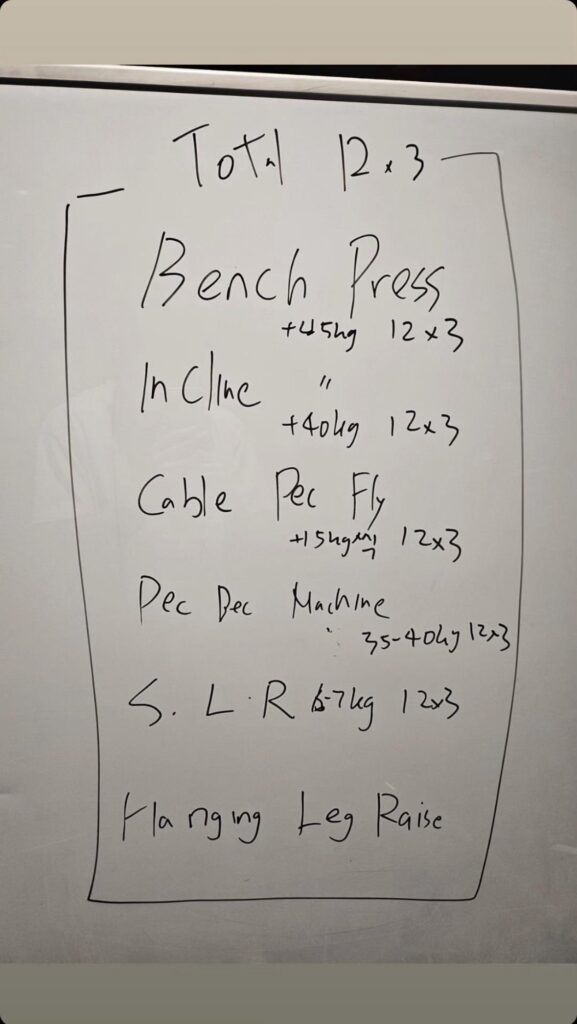 Total 12x3
Bench Press
+45kg 12x3
Incline "
+40kg 12x3
Cable Pec Fly
+15kg씩 12x3
Pec Dec Machine
35-40kg 12x3
S. L. R 6-7kg 12x3
Hanging Leg Raise